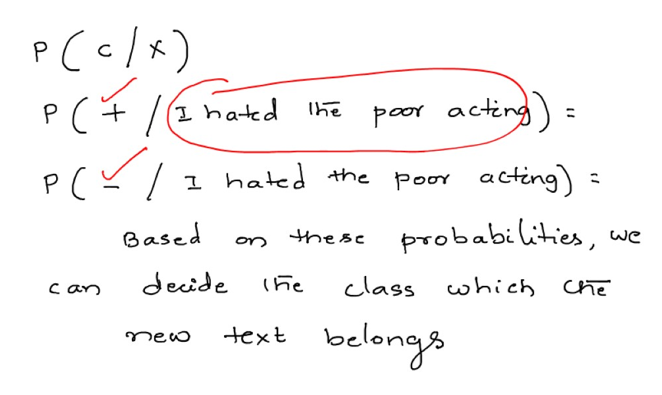 P ( c / x )
P ( + / I hated the poor acting ) =
P ( - / I hated the poor acting ) =
Based on these probabilities, we
can decide the class which the
new text belongs